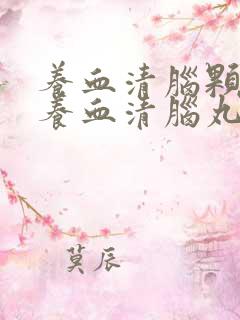 養血清腦顆
養血清腦丸
莫辰